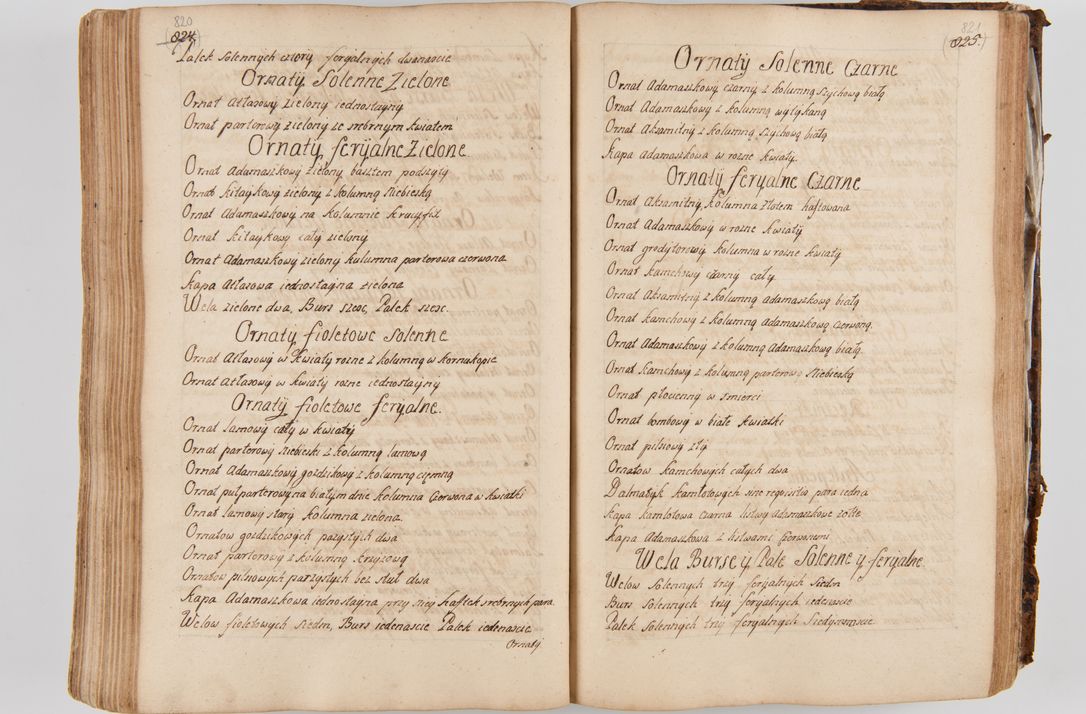 820
824
Palek Solennych cztery feryalnych dwanascie
Ornaty Solenne Zielone
Ornat Atłasowy Zielony iednostayny
Ornat parterowy zielony ze srebrnym kwiatem
Ornaty feryalne Zielone.
Ornat Adamaszkowy Zielony basztem podszyty
Ornat kitaykowy zielony z kolumną Niebieską
Ornat Adamaszkowy na kolumnie krucyfix
Ornat kitaykowy cały zielony
Ornat Adamaszkowy zielony kulumna parterowa czerwona
Kapa Atłasowa iednostayna zielona
Wela zielone dwa, Burs szesc, Palek szesc.
Ornaty fioletowe Solenne
Ornat Atłasowy w kwiaty rozne z kolumną w kornukopie
Ornat Atłasowy w kwiaty rozne iednostayny
Ornaty fioletowe feryalne.
Ornat lamowy cały w kwiaty
Ornat parterowy Niebieski z kolumną lamową
Ornat Adamaszkowy gozdzikowy z kolumną ciemną
Ornat pułparterowy na białym dnie kolumna Czerwona w kwiatki
Ornat lamowy stary kolumna zielona.
Ornatow gozdzikowych parzystych dwa
Ornat parterowy z kolumną krzyzową
Ornatow pilsnowych parzystych bez stuł dwa
Kapa Adamaszkowa iednostayna przy niey haftek srebrnych para
Welow fioletowych siedm, Burs iedenascie Palek iedenascie
Ornaty
821
825.
Ornaty Solenne Czarne
Ornat Adamaszkowy czarny z kolumną szychową białą
Ornat Adamaszkowy z kolumną wytykaną
Ornat Aksamitny z kolumną szychową białą
Kapa Adamaszkowa w rozne kwiaty.
Ornaty feryalne Czarne
Ornat Aksamitny kolumna złotem haftowana
Ornat Adamaszkowy w rozne kwiaty
Ornat grodytorowy kolumna w rozne kwiaty
Ornat kamchowy czarny cały
Ornat Aksamitny z kolumną adamaszkową białą
Ornat kamchowy z kolumną Adamaszkową Czerwoną.
Ornat Adamaszkowy z kolumną Adamaszkową białą.
Ornat kamchowy z kolumną parterową Niebieską
Ornat płocienny w smierci
Ornat bombowy w białe kwiatki
Ornat pilsnowy zły
Ornatow kamchowych całych dwa
Dalmatyk kamlotowych sine requisitis para iedna
Kapa kamlotowa czarna listwy Adamaszkowe zołte
Kapa Adamaszkowa z listwami Czerwonemi
Wela Burse y Pale Solenne y feryalne.
Welow Solennych trzy feryalnych siedm
Burs Solennych trzy feryalnych iedenascie
Palek Solennych trzy feryalnych siedymnascie